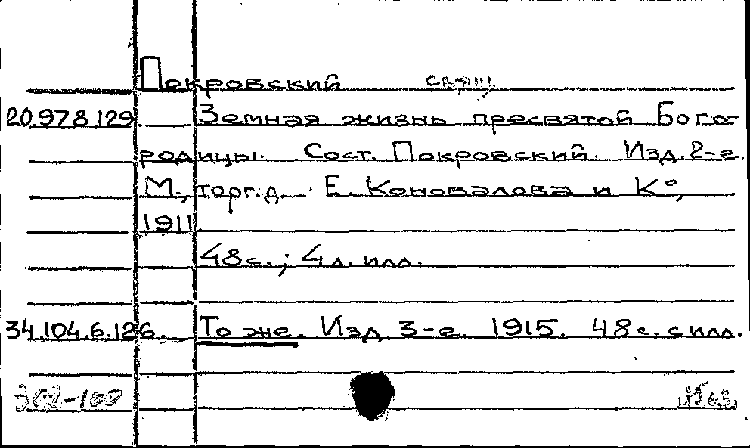 Покровский свящ.
20.978.129 Земная жизнь пресвятой Бого-
родицы. Сост. Покровский. Изд. 2-е.
М., торг. д. Е. Коновалова и К°,
1911
48 с.; 4 л. илл.
34.104.6.126. То же. Изд. 3-е. 1915. 48 с. с илл.